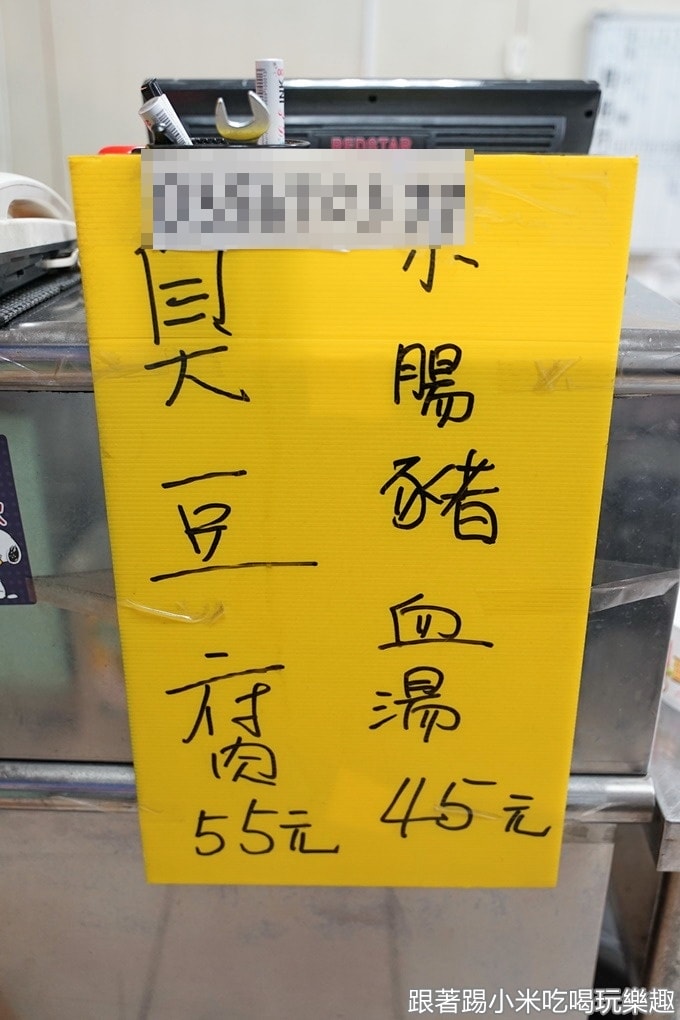 INK
REDSTAR
小腸豬血湯
45元
臭豆腐
55元
跟著踢小米吃喝玩樂趣